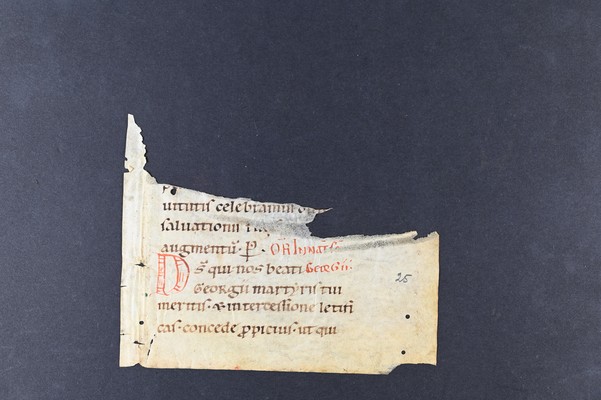 uirtutis celebramus
saluationis
augmentū· P̱· OR̄ IN NAT̄ S̄
D s̄ qui nos beati GEORGII·
Georgii martyris tui
meritis· & intercessione letifi
cas· concede ꝓpicius· ut qui
25